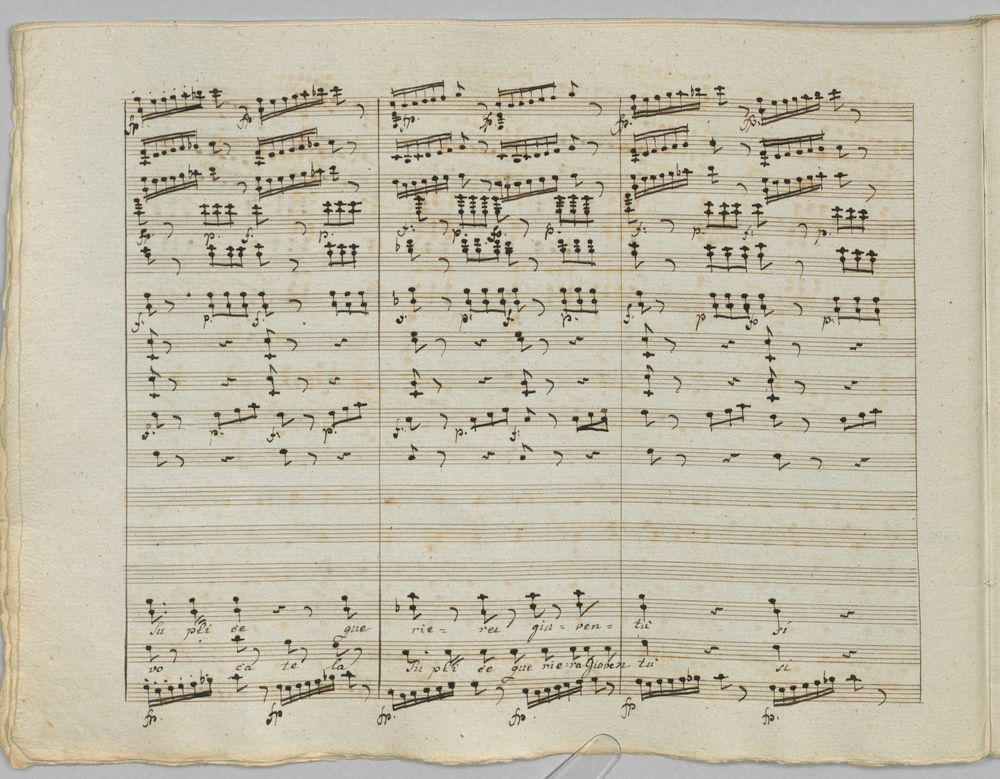 fp. fp. fp. fp. fp. fp.
fp. p. f. p. f. p. f. p. f. p. f. p.
f. p. f. f. p. f. p. f. p. p. fp p.
f. p. f. p. f. p. f.
Su pli ce gue rie = rei giu = ven = tù sí
vo ca te la Su pli ce gue rie = ra Gioven tù si
fp. fp fp. fp fp fp.